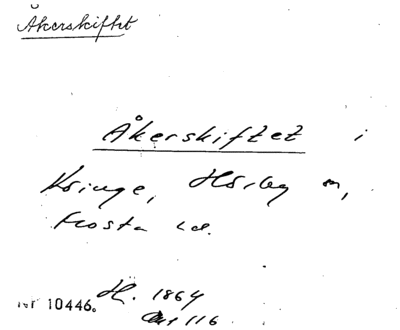 Åkerskiftet
Åkerskiftet i
Kringe, Hörby sn,
Frosta hd.
10446. H. 1864
116